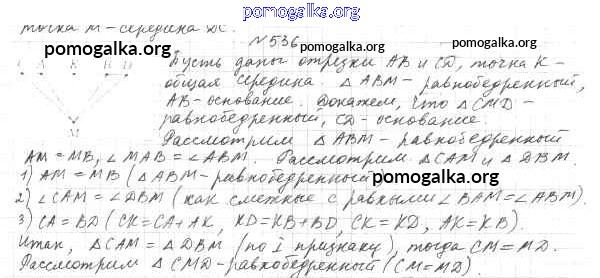 pomogalka.org
точка M - середина DC.
№ 536
pomogalka.org
pomogalka.org
Пусть даны отрезки AB и CD, точка K -
общая середина. △ABM - равнобедренный,
AB - основание. Докажем, что △CMD -
равнобедренный, CD - основание.
C A K B D
M
Рассмотрим △ABM - равнобедренный
AM = MB, ∠MAB = ∠ABM. Рассмотрим △CAM и △DBM.
1) AM = MB (△ABM - равнобедренный
pomogalka.org
2) ∠CAM = ∠DBM (как смежные с равными ∠BAM = ∠ABM).
3) CA = BD (CK = CA + AK, KD = KB + BD, CK = KD, AK = KB).
Итак, △CAM = △DBM (по I признаку), тогда CM = MD.
Рассмотрим △CMD - равнобедренный (CM = MD).
pomogalka.org